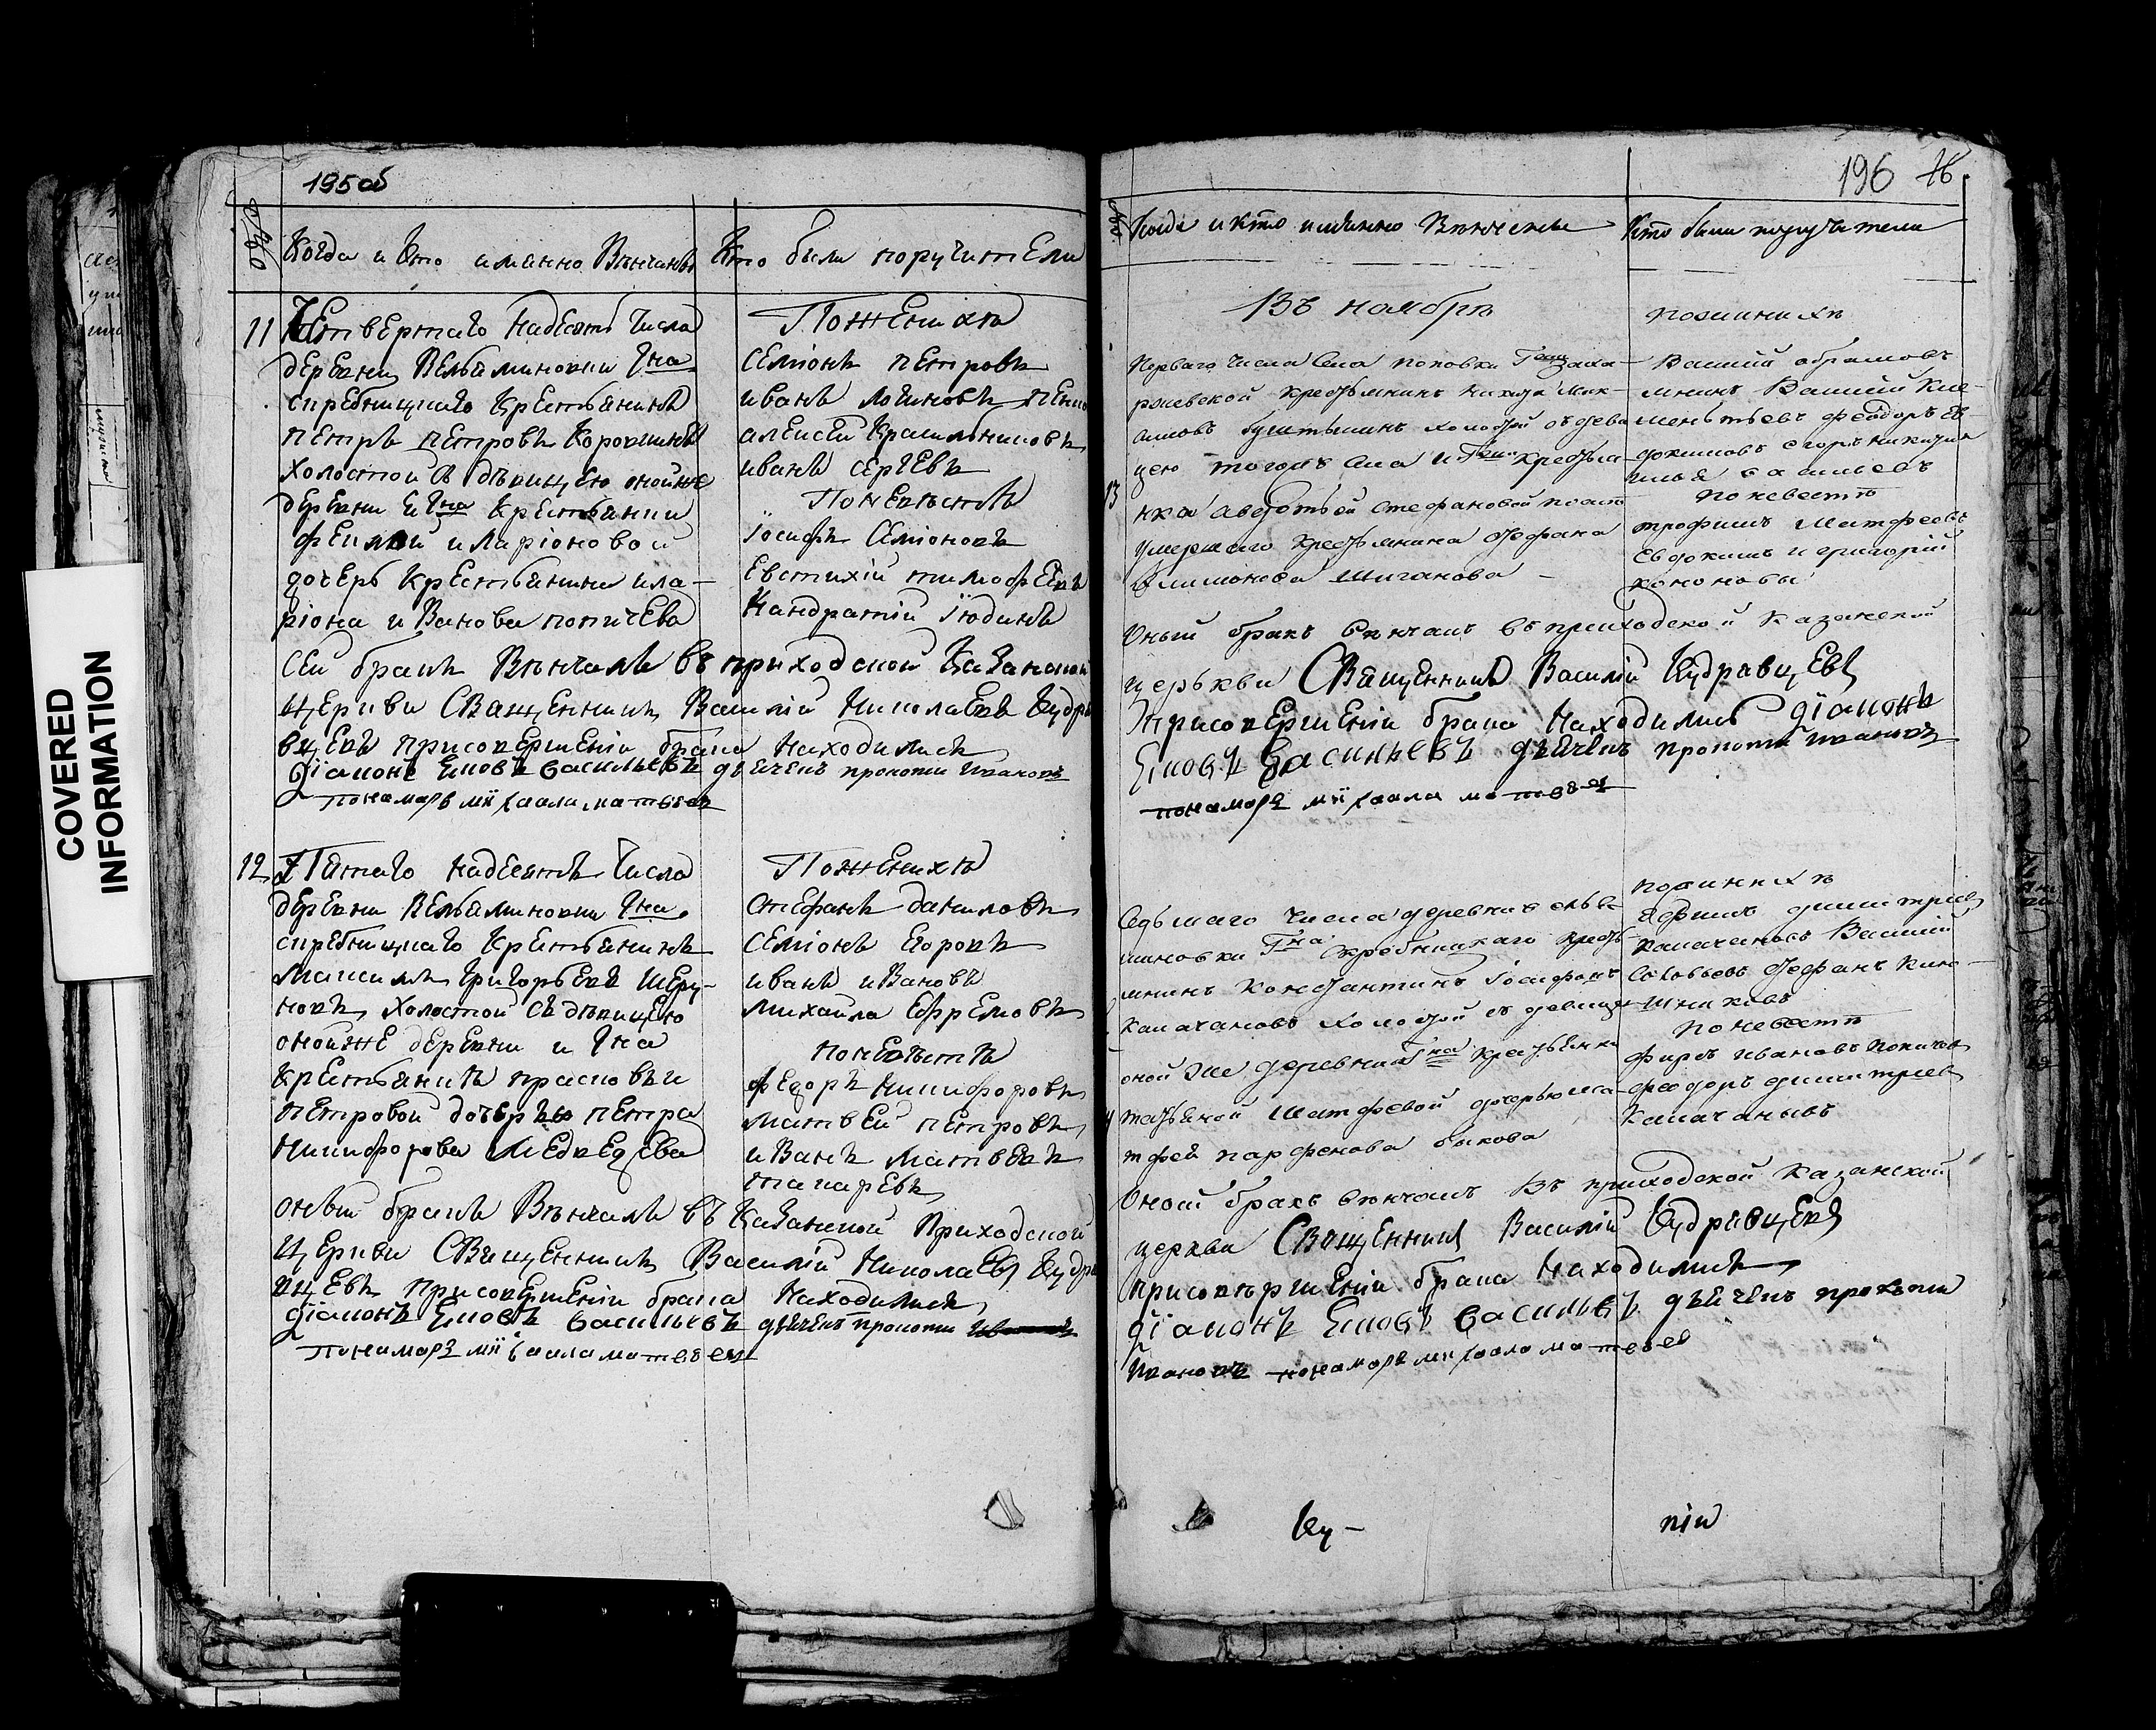 COVERED
INFORMATION
195об
№
Когда и кто именно Венчанъ
Кто были поручители
11
Четвертаго надесять числа
деревни Вельяминовки Гна
скребицкаго крестьянинъ
петръ петровъ
холостой съ девицею онойже
деревни и Гна крестьянки
иларіоновой
дочерь крестьянина ила-
ріона иванова попичева
По женихѣ
семіонъ петровъ
иванъ логиновъ
алексей красильниковъ
иванъ сергевъ
По невѣстѣ
іосифъ семіоновъ
евстихій тимофеевъ
кандратій іюдинъ
сей бракъ Вѣнчалъ въ приходской казанской
церкви Священникъ Василій Николаевъ кудря
вцевъ присовершеніи брака находились
діаконъ василіевъ дьячекъ прокопи ивановъ
понамарь михаала матвеев
12
Пятаго надесять числа
деревни Вельяминовки Гна
скребицкаго крестьянинъ
максимъ григорьевъ шеру-
новъ холостой съ дѣвицею
онойже деревни и Гна
крестьянинъ прасковьи
петровой дочерью петра
никифорова медведева
По женихѣ
стефанъ даниловъ
семіонъ егоровъ
иванъ ивановъ
михайла ефремовъ
по невѣстѣ
федоръ никифоровъ
матвей петровъ
иванъ матвеевъ
токаревъ
оный бракъ Вѣнчалъ въ казанской приходской
церкви Священникъ Василій Николаевъ кудря
вцевъ присовершеніи брака находились
діаконъ василіевъ дьячекъ прокопи ивановъ
понамарь михаала матвеев
196
№
Когда и кто имянно Венчены
Кто были поручители
Въ ноябрѣ
13
Перваго числа села поповки Гжи заха-
ржевской крестьянинъ никита мак-
симовъ холостой съ деви
цею тогожъ села и Гжи крестья-
нка авдотьей стефановой
умершаго крестьянина стефана
шиганова
пожинихѣ
Василій абрамовъ
Василій Кле-
ментьевъ феодоръ ев-
докимовъ егоръ никитин
илья васильевъ
по невестѣ
трофимъ матфеевъ
евдокимъ и григорій
кононовы
Оный бракъ венчалъ въ приходской казанской
церькви Священникъ Василій кудрявцевъ
присовершеніи брака находились діаконъ
василіевъ дьячекъ прокопи ивановъ
понамарь михаала матвеев
Седьмаго числа деревни велья
миновки Гна скребицкаго кресть-
янинъ константинъ іосифовъ
калачановъ холостой съ девицей
оной же деревни и Гна крестьянки
татьяной матфевой дочерью ма-
тфей парфенова быкова
пожинихѣ
ефимъ димитріев
калачановъ Василій
саловьевъ стефанъ
по невестѣ
фирсъ ивановъ попичев
феодоръ димитріев
калачановъ
Оной бракъ венчалъ въ приходской казанской
церкви Священникъ Василій кудрявцевъ
присовершеніи брака находились
діаконъ василіевъ дьячекъ прокопи
ивановъ понамарь михаала матвеев
ку-
пію